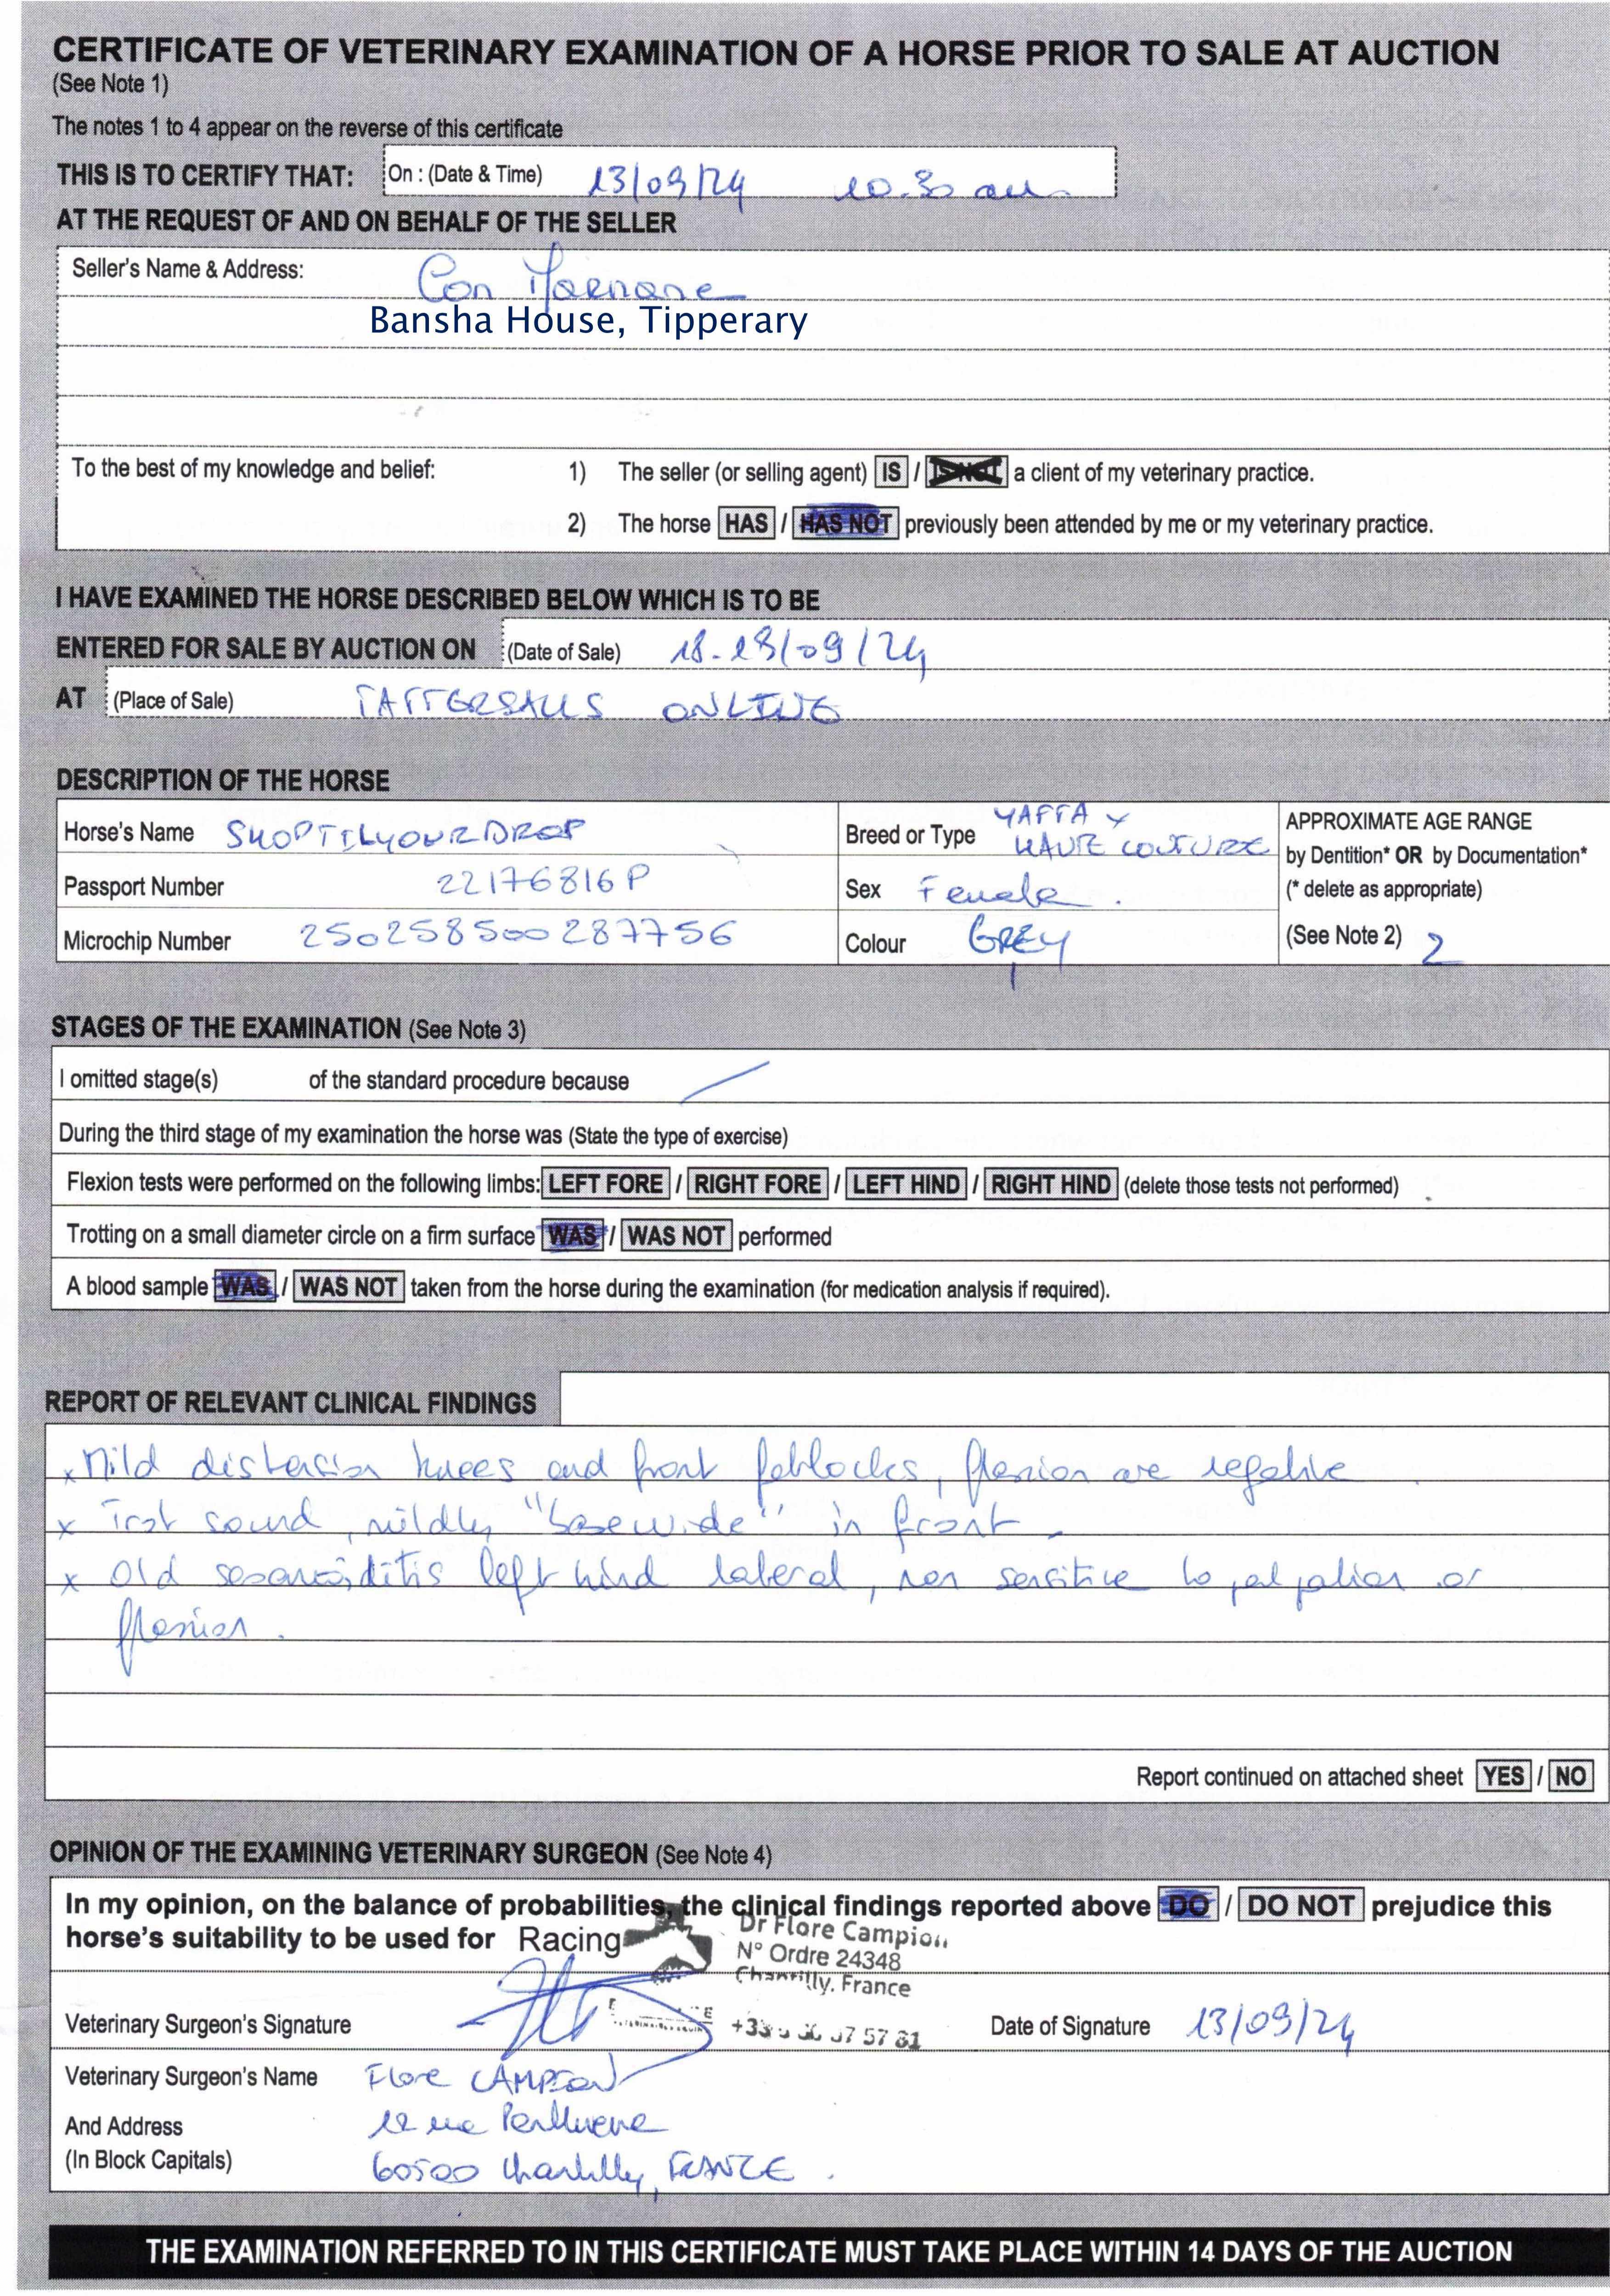 CERTIFICATE OF VETERINARY EXAMINATION OF A HORSE PRIOR TO SALE AT AUCTION
(See Note 1)
The notes 1 to 4 appear on the reverse of this certificate
THIS IS TO CERTIFY THAT: On : (Date & Time) 13/09/24 10.30 am
AT THE REQUEST OF AND ON BEHALF OF THE SELLER
Seller's Name & Address: Con Marnane
Bansha House, Tipperary
To the best of my knowledge and belief: 1) The seller (or selling agent) IS / IS NOT a client of my veterinary practice.
2) The horse HAS / HAS NOT previously been attended by me or my veterinary practice.
I HAVE EXAMINED THE HORSE DESCRIBED BELOW WHICH IS TO BE
ENTERED FOR SALE BY AUCTION ON (Date of Sale) 18-19/09/24
AT (Place of Sale) TATTERSALLS ONLINE
DESCRIPTION OF THE HORSE
Horse's Name SHOPTILYOURDROP Breed or Type YAFFA x HAUTE COUTURE
APPROXIMATE AGE RANGE
by Dentition* OR by Documentation*
Passport Number 22176816P Sex Female. (* delete as appropriate)
Microchip Number 250258500287756 Colour GREY (See Note 2) 2
STAGES OF THE EXAMINATION (See Note 3)
I omitted stage(s) of the standard procedure because
During the third stage of my examination the horse was (State the type of exercise)
Flexion tests were performed on the following limbs: LEFT FORE / RIGHT FORE / LEFT HIND / RIGHT HIND (delete those tests not performed)
Trotting on a small diameter circle on a firm surface WAS / WAS NOT performed
A blood sample WAS / WAS NOT taken from the horse during the examination (for medication analysis if required).
REPORT OF RELEVANT CLINICAL FINDINGS
x Mild distension knees and front fetlocks, flexion are negative
x Trot sound, mildly "basewide" in front.
x Old sesamoiditis left hind lateral, non sensitive to palpation or
flexion.
Report continued on attached sheet YES / NO
OPINION OF THE EXAMINING VETERINARY SURGEON (See Note 4)
In my opinion, on the balance of probabilities, the clinical findings reported above DO / DO NOT prejudice this
horse's suitability to be used for Racing
Dr Flore Campion
N° Ordre 24348
Chantilly. France
Veterinary Surgeon's Signature Date of Signature 13/09/24
Veterinary Surgeon's Name Flore CAMPION
And Address 12 rue
(In Block Capitals) 60500 Chantilly, FRANCE.
THE EXAMINATION REFERRED TO IN THIS CERTIFICATE MUST TAKE PLACE WITHIN 14 DAYS OF THE AUCTION